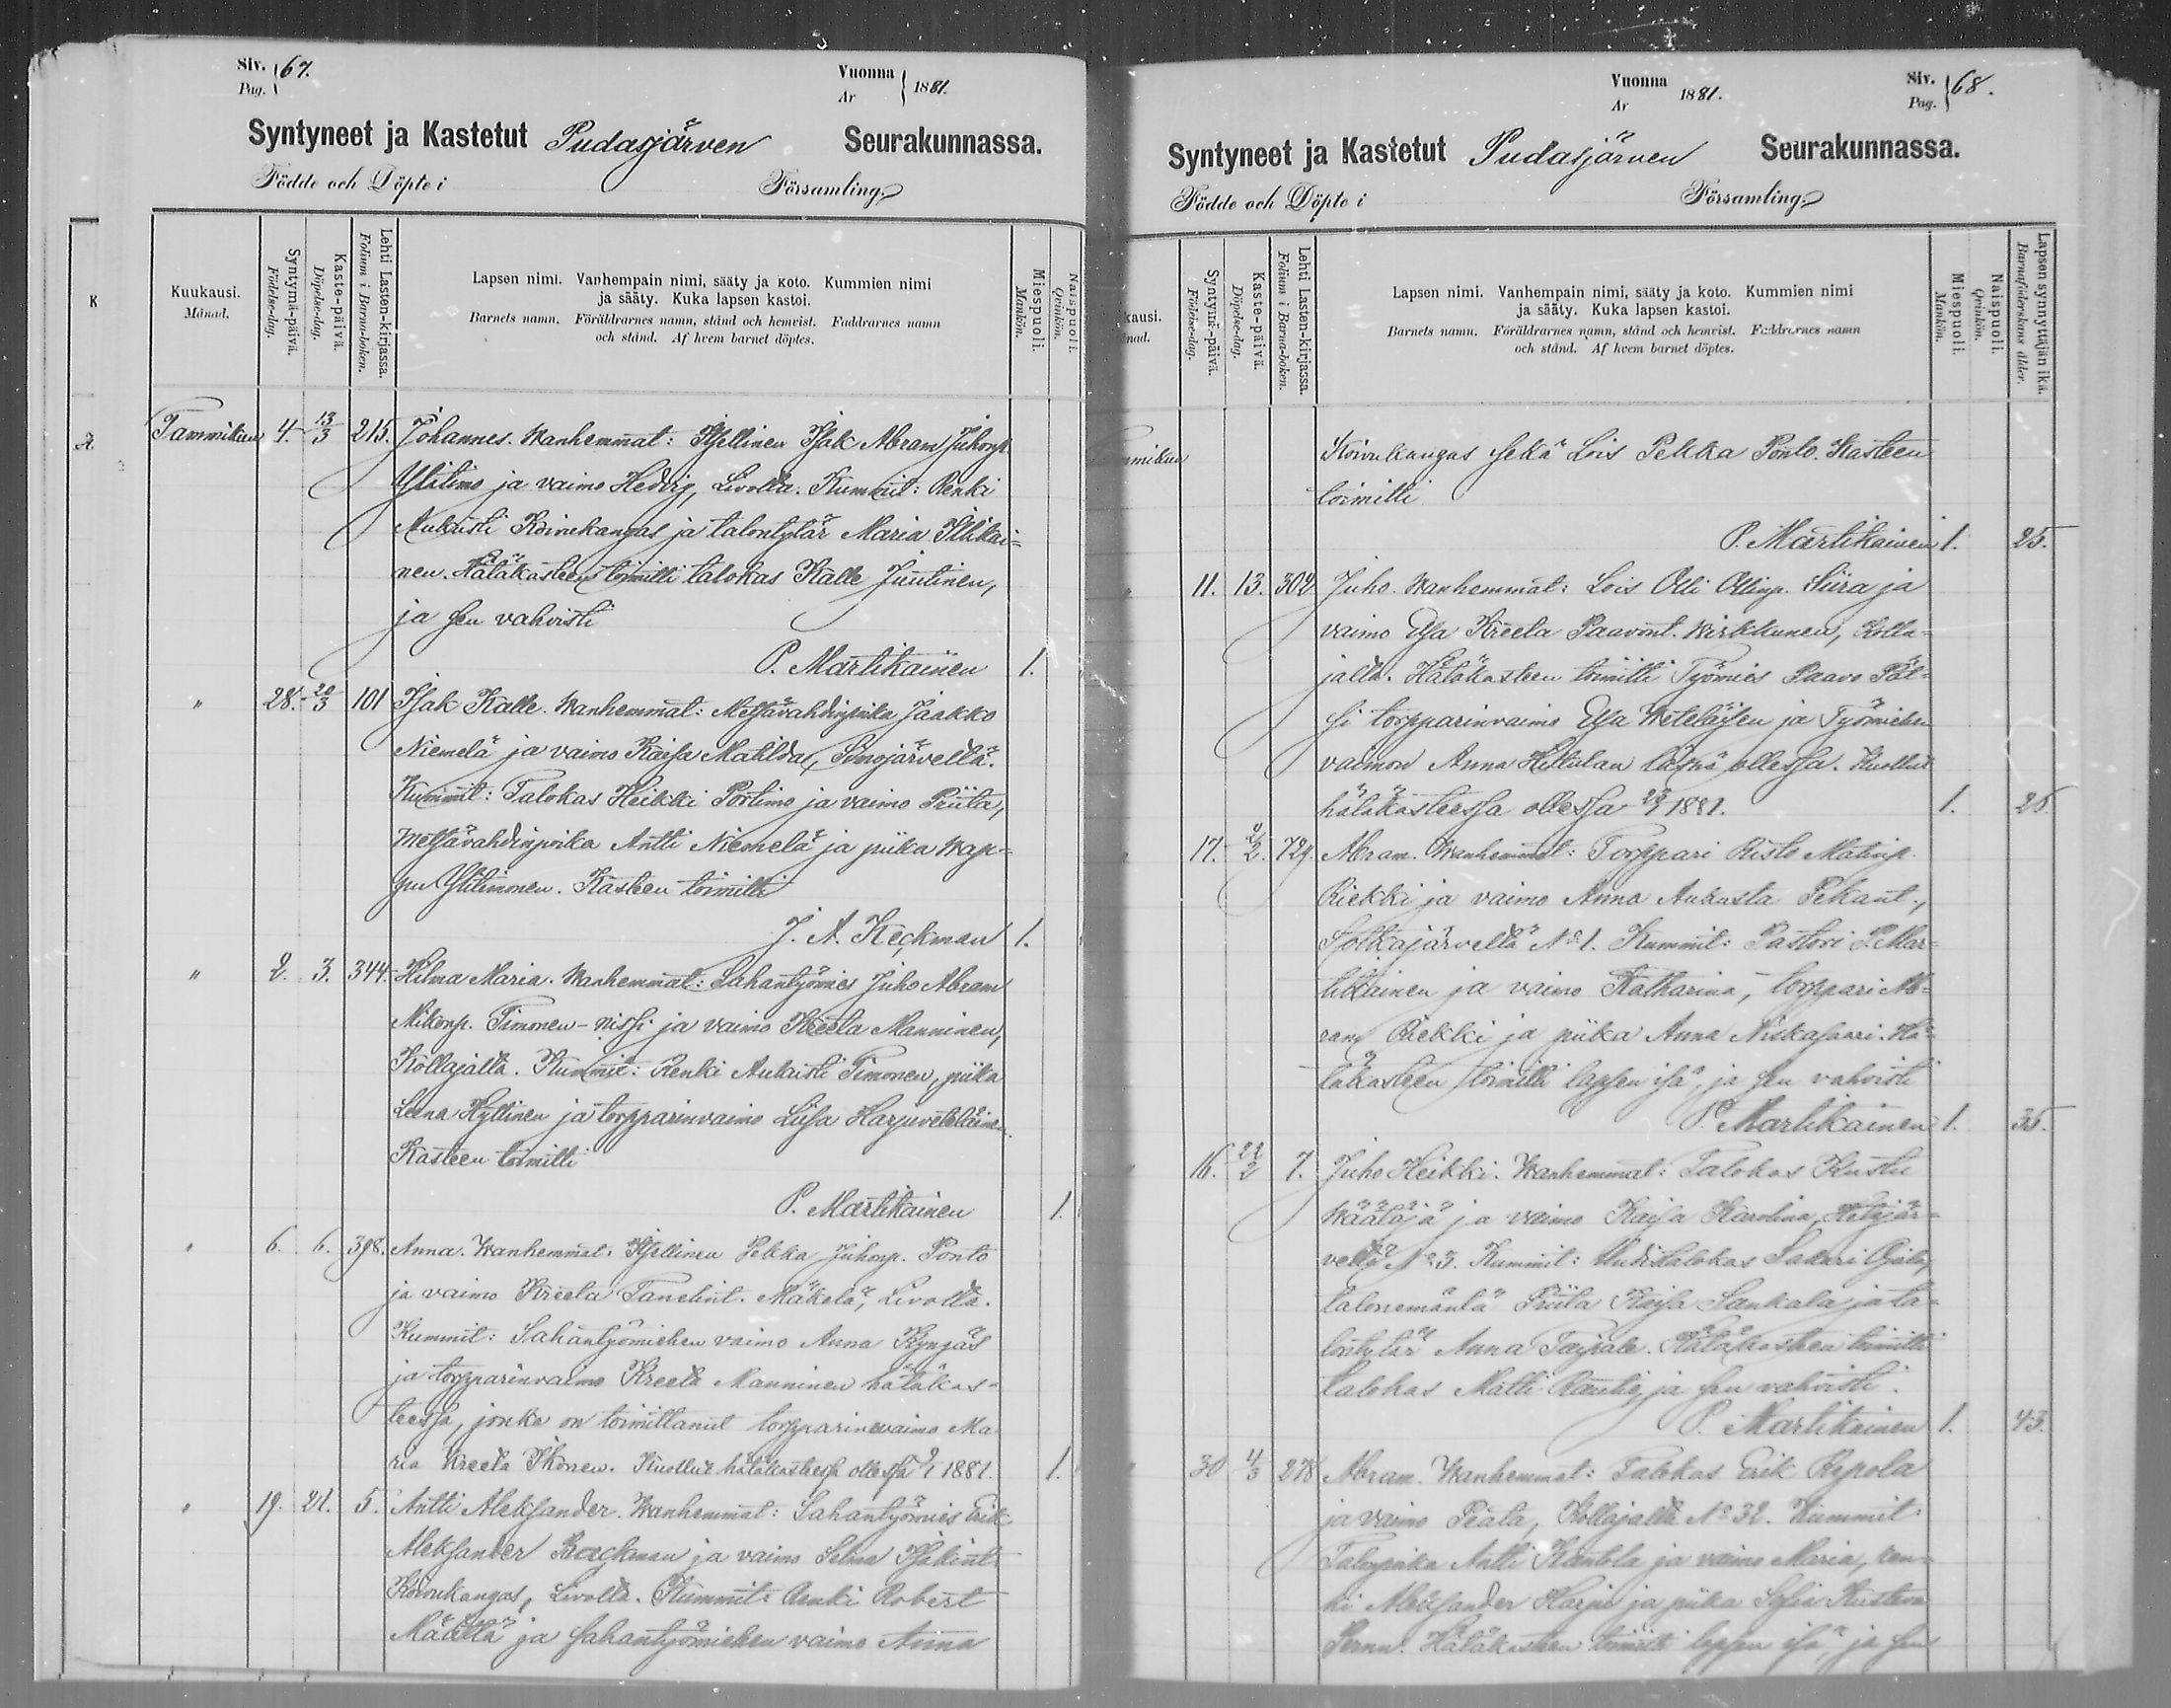 Siv. 67.
Pag.
Vuonna 1881.
År
Syntyneet ja Kastetut Pudasjärven Seurakunnassa.
Födde och Döpte i Församling.
Kuukausi.
Månad.
Syntymä-päivä.
Födelse-dag.
Kaste-päivä.
Döpelse-dag.
Lehti Lasten-kirjassa.
Folium i Barna-boken.
Lapsen nimi. Vanhempain nimi, sääty ja koto. Kummien nimi
ja sääty. Kuka lapsen kastoi.
Barnets namn. Föräldrarnes namn, stånd och hemvist. Faddrarnes namn
och stånd. Af hvem barnet döptes.
Miespuoli.
Mankön.
Naispuoli.
Qvinkön.
Tammikuu 4. 13/3 215. Johannes. Wanhemmat: Itsellinen Isak Abram Juhonp.
Ylitimo ja vaimo Hedvig, Livolta. Kummit: Renki
Aukusti Koivukangas ja talontytär Maria Illikai-
nen. Hätäkasteen toimitti talokas Kalle Juutinen,
ja sen vahvisti
P. Martikainen 1.
" 28. 20/3 101 Isak Kalle. Wanhemmat: Metsävahdinpoika Jaakko
Niemelä ja vaimo Kaisa Matilda, Sonojärveltä.
Kummit: Talokas Heikki Portimo ja vaimo Priita,
Metsävahdinpoika Antti Niemelä ja piika Wap-
pu Ylitimonen. Kasteen toimitti
J. A. Keckman 1.
" 2. 3. 344. Hilma Maria. Wanhemmat: Sahantyömies Juho Abram
Mikonp. Timonen-Nissi ja vaimo Kreeta Manninen,
Kollajalta. Kummit: Renki Aukusti Timonen, piika
Leena Hyttinen ja torpparinvaimo Liisa Harjuveteläinen.
Kasteen toimitti
P. Martikainen 1.
" 6. 6. 398. Anna. Wanhemmat: Itsellinen Pekka Juhonp. Ponto
ja vaimo Kreeta Tanelint. Mäkelä, Livolta.
Kummit: Sahantyömiehen vaimo Anna Kyngäs
ja torpparinvaimo Kreeta Manninen hätäkas-
teessa, jonka on toimittanut torpparinvaimo Ma
ria Kreeta Ikonen. Kuollut hätäkasteessa ollessa 9/1 1881. 1.
" 19. 21. 5. Antti Aleksander. Wanhemmat: Sahantyömies Erik
Aleksander Brackman ja vaimo Selma Isakint.
Koivukangas, Livolta. Kummit: Renki Robert
Määttä ja sahantyömiehen vaimo Anna
Vuonna 1881.
År
Siv. 68.
Pag.
Syntyneet ja Kastetut Pudasjärven Seurakunnassa.
Födde och Döpte i Församling.
kausi.
nad.
Syntymä-päivä.
Födelse-dag.
Kaste-päivä.
Döpelse-dag.
Lehti Lasten-kirjassa.
Folium i Barna-boken.
Lapsen nimi. Vanhempain nimi, sääty ja koto. Kummien nimi
ja sääty. Kuka lapsen kastoi.
Barnets namn. Föräldrarnes namn, stånd och hemvist. Faddrarnes namn
och stånd. Af hvem barnet döptes.
Miespuoli.
Mankön.
Naispuoli.
Qvinkön.
Lapsen synnyttäjän ikä.
Barnaföderskans ålder.
mmikuu Koivukangas sekä Lois Pekka Ponto. Kasteen
toimitti
P. Martikainen 1. 25.
" 11. 13. 302 Juho. Wanhemmat: Lois Olli Ollinp. Siira ja
vaimo Elsa Kreeta Paavont. Wirkkunen, Kolla-
jalta. Hätäkasteen toimitti Työmies Paavo Päl-
si torpparinvaimo Elsa Weteläisen ja Työmiehen
vaimon Anna Hiltulan läsnä ollessa. Kuollut
hätäkasteessa ollessa 1881. 1. 26.
17. 2/2. 729. Abram. Wanhemmat: Torppari Risto Matinp.
Riekki ja vaimo Anna Aukusta Pekant.,
Sotkajärveltä No 1. Kummit: Pastori P. Mar-
tikainen ja vaimo Katharina, torppari Ab-
ram Riekki ja piika Anna Niskasaari. Hä-
täkasteen toimitti lapsen isä, ja sen vahvisti
P. Martikainen 1. 35.
" 16. 22/2 7. Juho Heikki. Wanhemmat: Talokas Kustu
Wäätäjä ja vaimo Kaisa Karolina, Hetejär-
veltä No 3. Kummit: Uudistalokas Sakari Ojala,
talonemäntä Priita Kaisa Sankala ja ta-
lontytär Anna Taipale. Hätäkasteen toimitti
talokas Matti Rautio, ja sen vahvisti.
P. Martikainen 1. 43.
" 30 4/3 278 Abram. Wanhemmat: Talokas Erik Repola
ja vaimo Peata, Kollajalta No 32. Kummit:
Talonpoika Antti Kantola ja vaimo Maria, ren-
ki Aleksander Harju ja piika Sofia Kustava
Hätäkasteen toimitti lapsen isä, ja sen